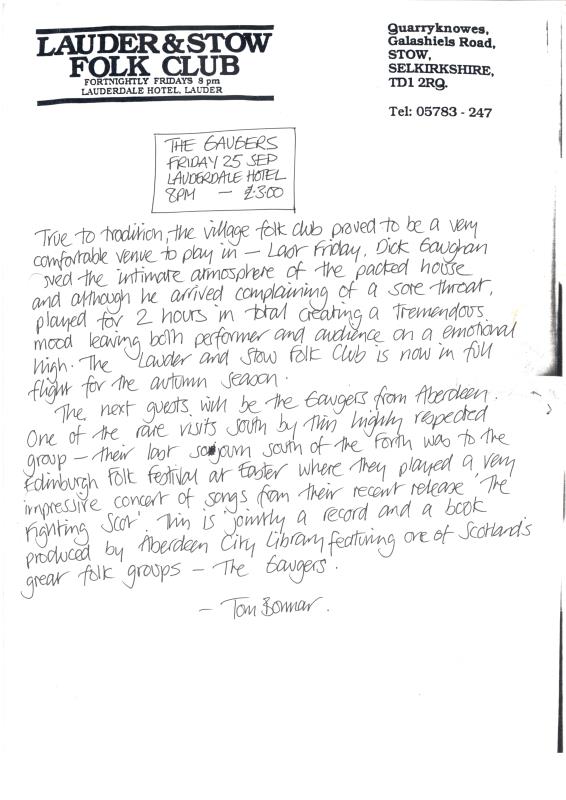 LAUDER & STOW
FOLK CLUB
FORTNIGHTLY FRIDAYS 8 pm
LAUDERDALE HOTEL, LAUDER
Quarryknowes,
Galashiels Road,
STOW,
SELKIRKSHIRE,
TD1 2RQ.
Tel: 05783 - 247
THE GAUGERS
FRIDAY 25 SEP
LAUDERDALE HOTEL
8PM — £3.00
True to tradition, the village folk club proved to be a very
comfortable venue to play in — Last Friday, Dick Gaughan
the intimate atmosphere of the packed house
and although he arrived complaining of a sore throat,
played for 2 hours in total creating a tremendous
mood leaving both performer and audience on a emotional
high. The Lauder and Stow Folk Club is now in full
flight for the autumn season.
The next guests will be the Gaugers from Aberdeen.
One of the rare visits south by this highly respected
group — their last sojourn south of the Forth was to the
Edinburgh Folk Festival at Easter where they played a very
impressive concert of songs from their recent release 'The
Fighting Scot'. This is jointly a record and a book
produced by Aberdeen City Library featuring one of Scotland's
great folk groups — The Gaugers.
— Tom Bonnar.